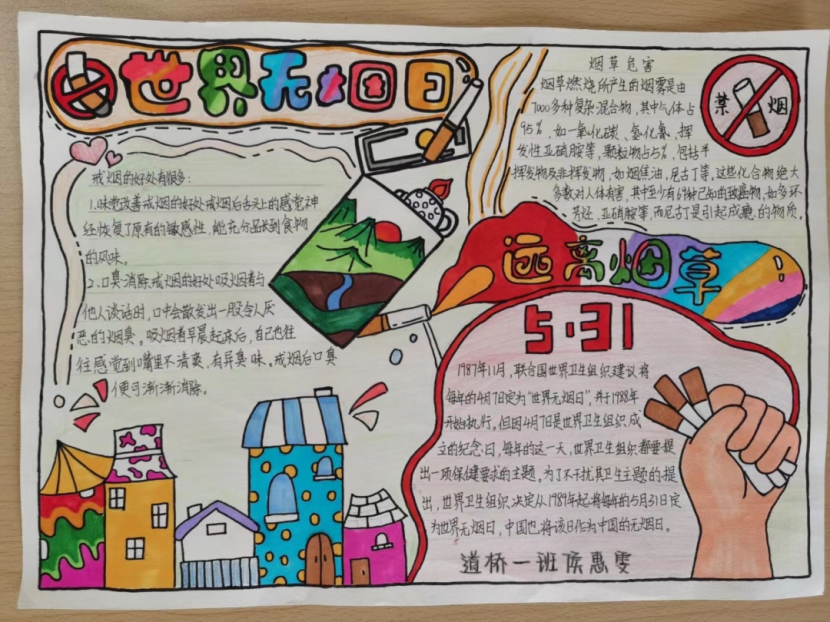 世界无烟日
戒烟的好处有很多:
1.味觉改善戒烟的好处戒烟后舌头上的感觉神
经恢复了原有的敏感性,能充分品味到食物
的风味。
2.口臭消除戒烟的好处吸烟者与
他人谈话时,口中会散发出一股令人厌
恶的烟臭。吸烟者早晨起床后,自己也往
往感觉到嘴里不清爽,有异臭味。戒烟后口臭
便可渐渐消除。
烟草危害
烟草燃烧所产生的烟雾是由
7000多种复杂混合物,其中气体占
95%,如一氧化碳、氢化氰、挥
发性亚硝胺等,颗粒物占5%,包括半
挥发物及非挥发物,如烟焦油,尼古丁等,这些化合物绝大
多数对人体有害,其中至少有69种已知的致癌物,如多环
芳烃、亚硝胺等,而尼古丁是引起成瘾的物质。
禁烟
远离烟草
5·31
1987年11月,联合国世界卫生组织建议将
每年的4月7日定为“世界无烟日”,并于1988年
开始执行。但因4月7日是世界卫生组织成
立的纪念日,每年的这一天,世界卫生组织都要提
出一项保健要求的主题。为了不干扰其卫生主题的提
出,世界卫生组织决定从1989年起将每年的5月31日定
为世界无烟日,中国也将该日作为中国的无烟日。
道桥一班侯惠雯